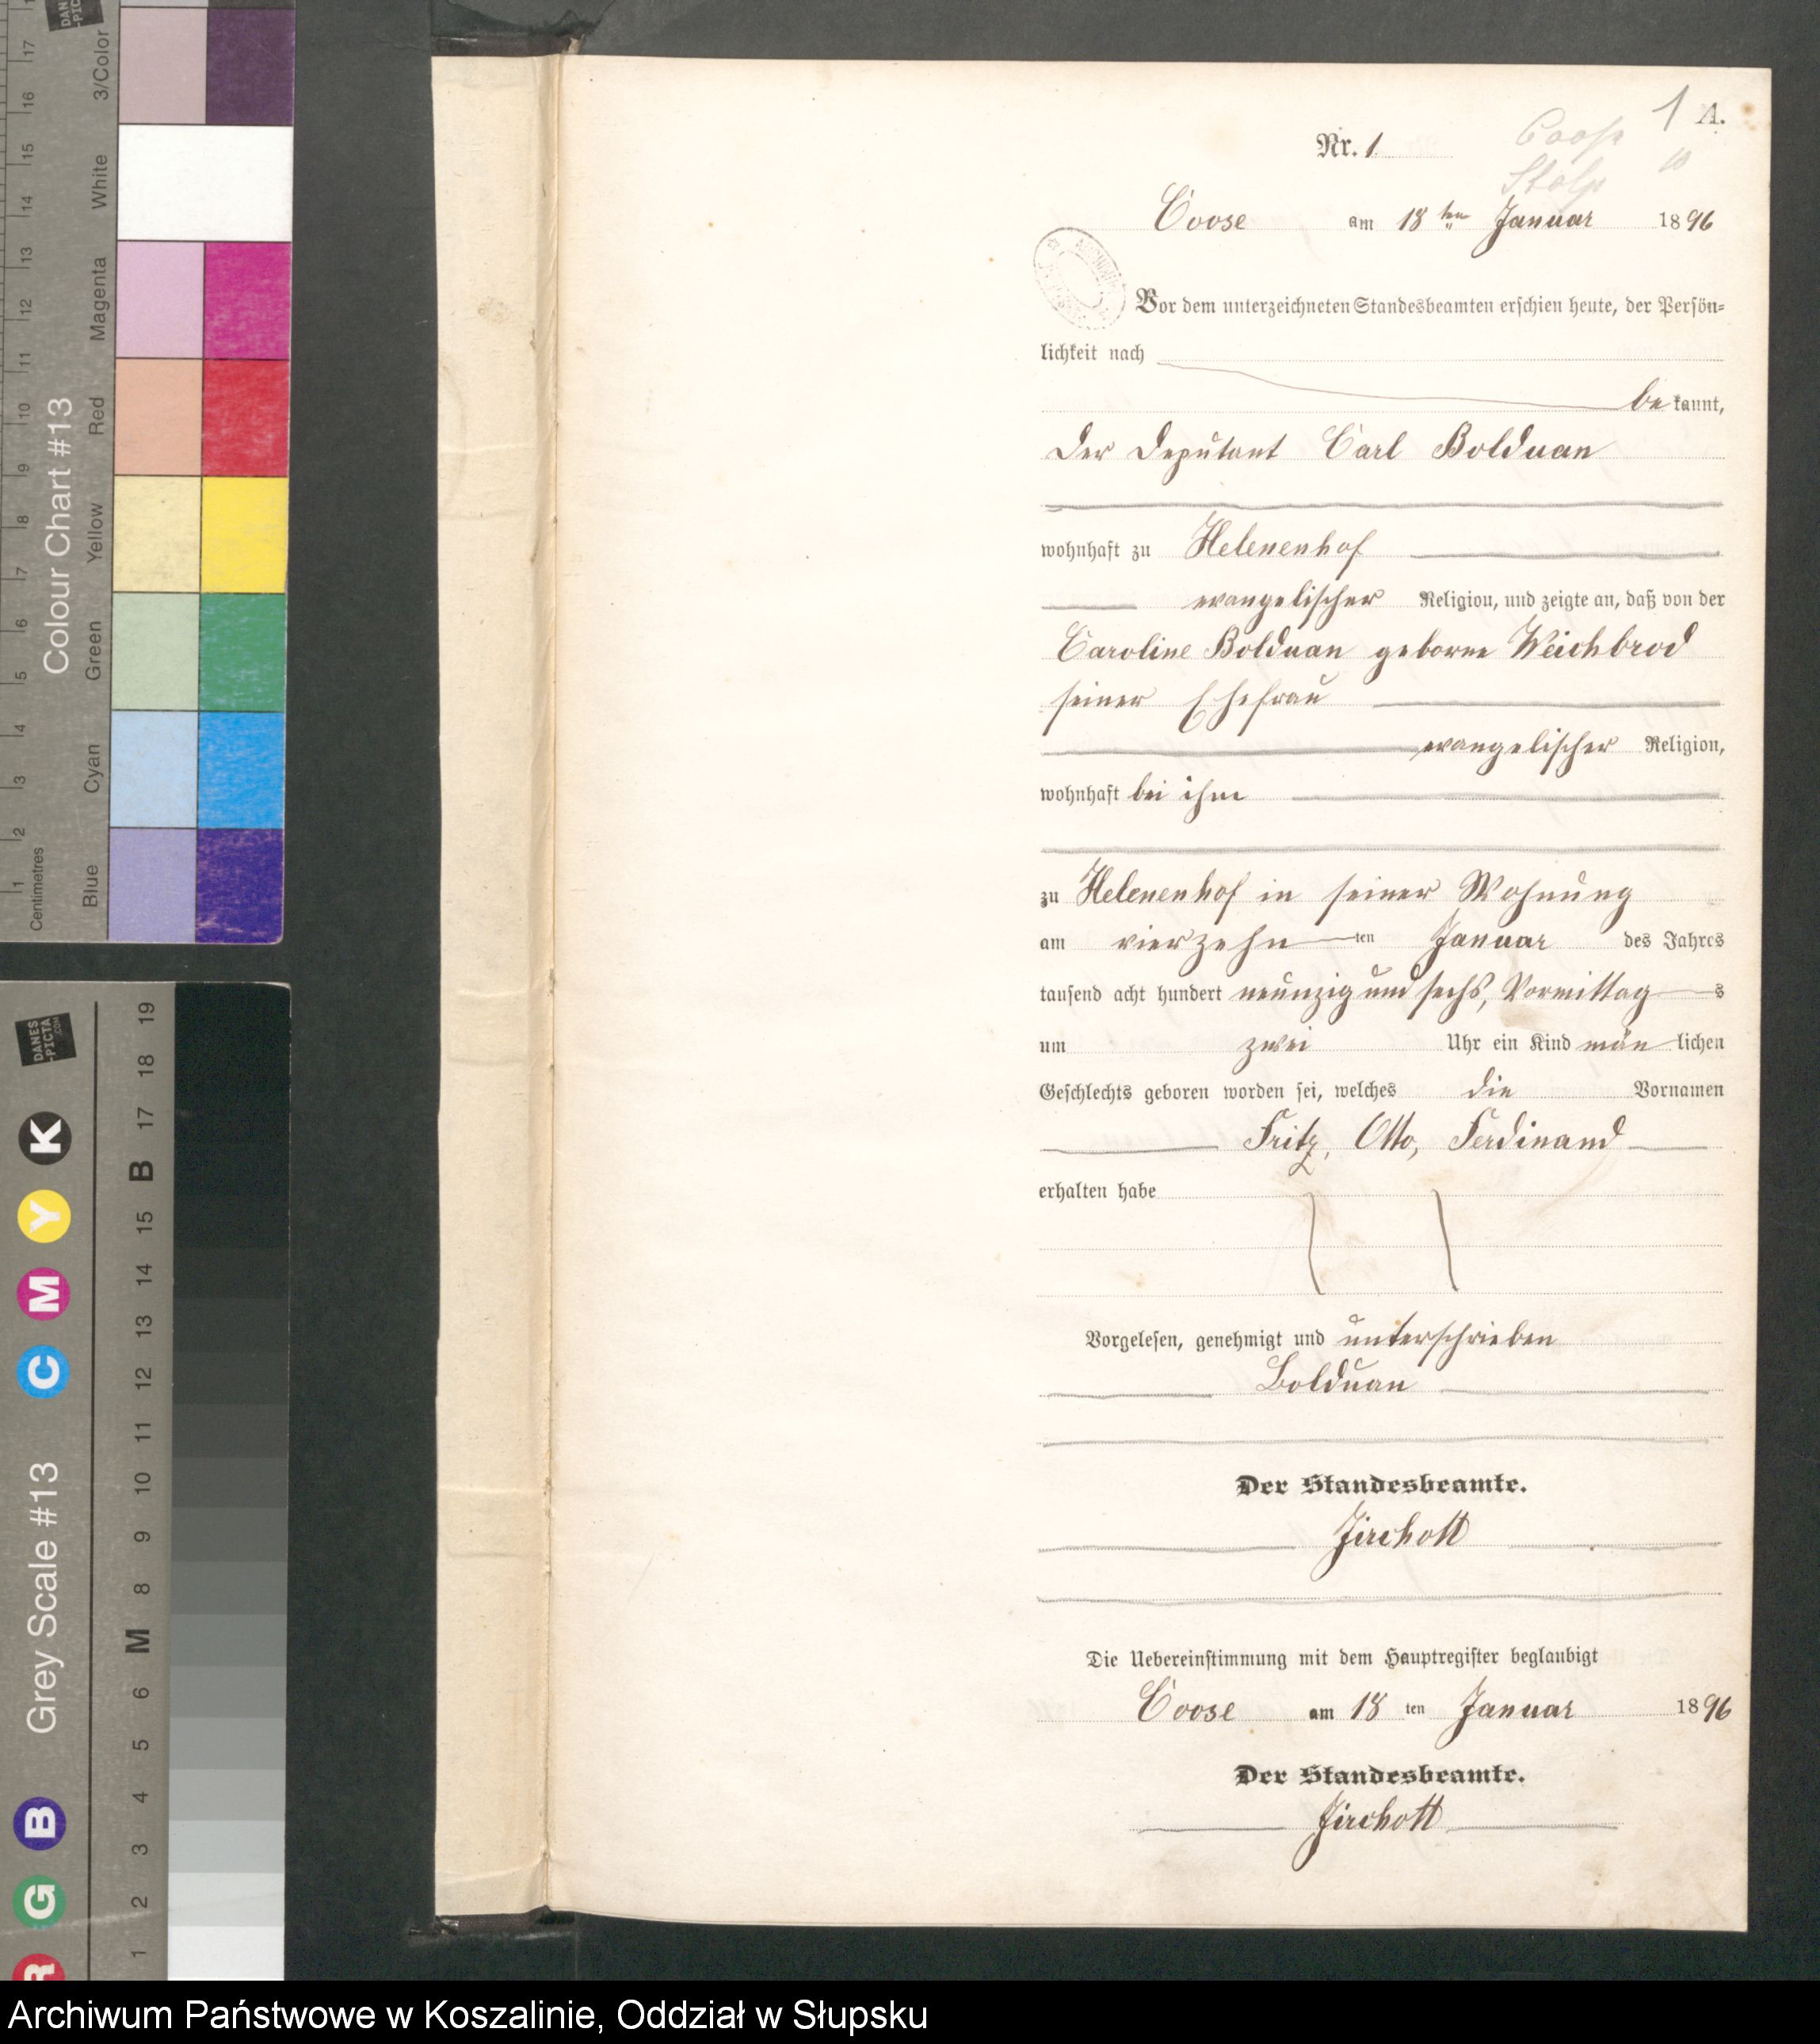 3/Color
White
Magenta
Red
Yellow
Green
Cyan
Blue
Colour Chart #13
Centimetres
1 2 3 4 5 6 7 8 9 10 11 12 13 14 15 16 17
DANES
-PICTA
.COM
Grey Scale #13
R G B C M Y K
1 2 3 4 5 6 M 8 9 10 11 12 13 14 15 B 17 18 19
1 A.
Nr. 1
Coose
Stolp
Coose am 18ten Januar 1896
Vor dem unterzeichneten Standesbeamten erschien heute, der Persön-
lichkeit nach
be kannt,
der Deputant Carl Bolduan
wohnhaft zu Helenenhof
evangelischer Religion, und zeigte an, daß von der
Caroline Bolduan geborne Weichbrod
seiner Ehefrau
evangelischer Religion,
wohnhaft bei ihm
zu Helenenhof in seiner Wohnung
am vierzehn ten Januar des Jahres
tausend acht hundert neunzig und sechs, Vormittag s
um zwei Uhr ein Kind män lichen
Geschlechts geboren worden sei, welches die Vornamen
Fritz, Otto, Ferdinand
erhalten habe
Vorgelesen, genehmigt und unterschrieben
Bolduan
Der Standesbeamte.
Jirchott
Die Uebereinstimmung mit dem Hauptregister beglaubigt
Coose am 18 ten Januar 1896
Der Standesbeamte.
Jirchott
Archiwum Państwowe w Koszalinie, Oddział w Słupsku